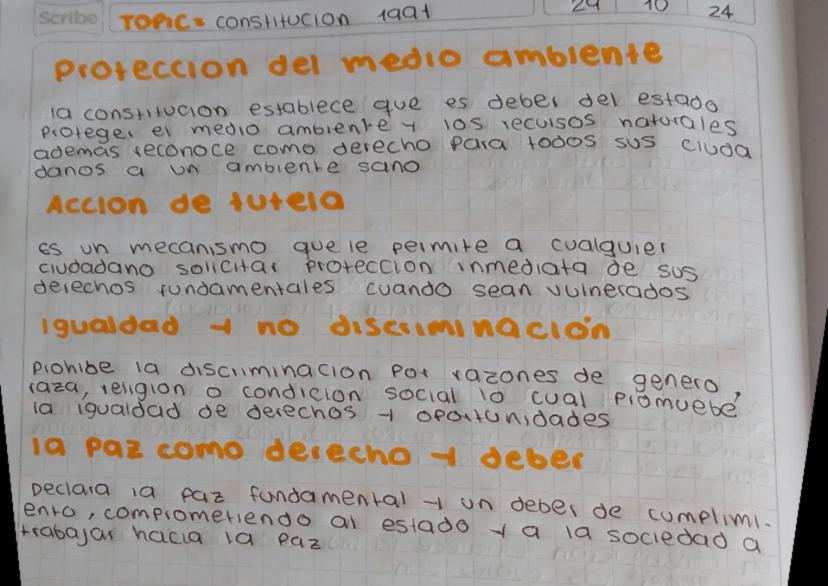 Scribe TOPIC: constitucion 1991 29 10 24
Proteccion del medio ambiente
la constitucion establece que es deber del estado
proteger el medio ambiente y los recursos naturales
ademas reconoce como derecho para todos sus ciuda
danos a un ambiente sano
Accion de tutela
es un mecanismo que le permite a cualquier
ciudadano solicitar proteccion inmediata de sus
derechos fundamentales cuando sean vulnerados
igualdad y no discriminación
prohibe la discriminacion por razones de genero,
raza, religion o condicion social lo cual promuebe
la igualdad de derechos y oportunidades
la paz como derecho y deber
Declara la paz fundamental y un deber de cumplimi-
ento, comprometiendo al estado y a la sociedad a
trabajar hacia la paz